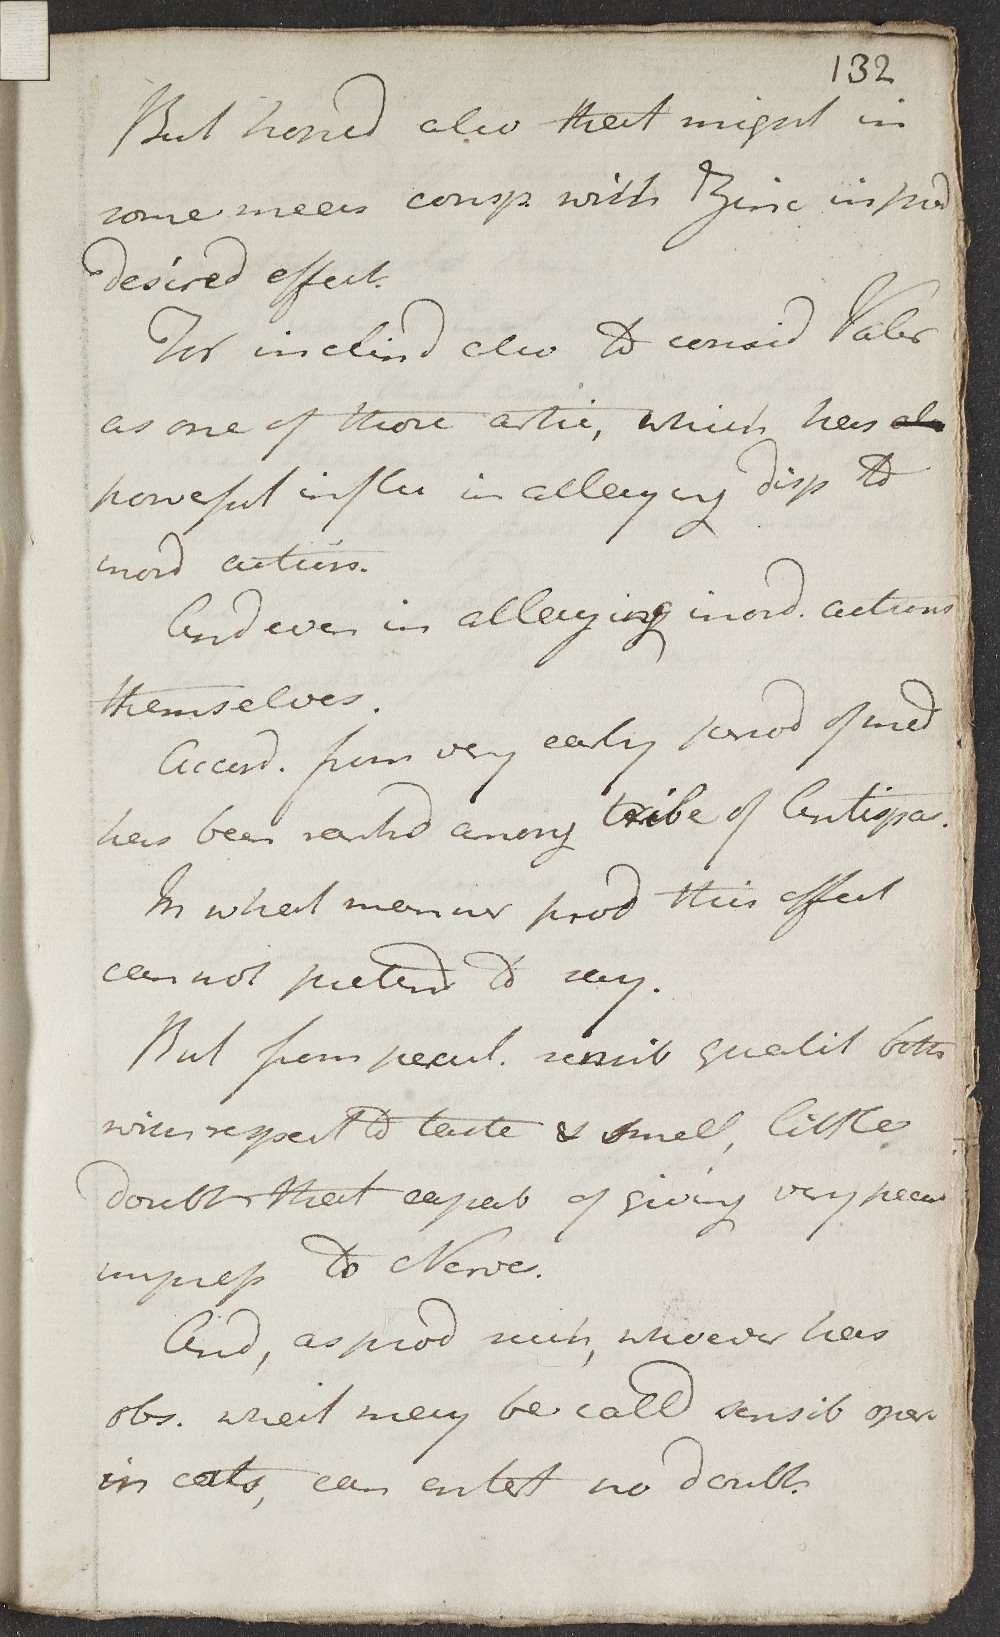 132
But hoped also that might in
some meas consp. with Zinc in prod
desired effect.
For inclind also to consid Valer
as one of those artic, which has
powerful influ in allaying disp to
inord actions.
And even in allaying inord. actions
themselves.
Accord. from very early period of med
has been rankd among tribe of Antispas.
In what manner prod this effect
can not pretend to say.
But from pecul. sensib qualit both
with respect to taste & smell, little
doubt that capab of giving very pecul
impress to Nerves.
And, as prod such, whoever has
obs. what may be calld sensib oper
in cats, can entert no doubt.